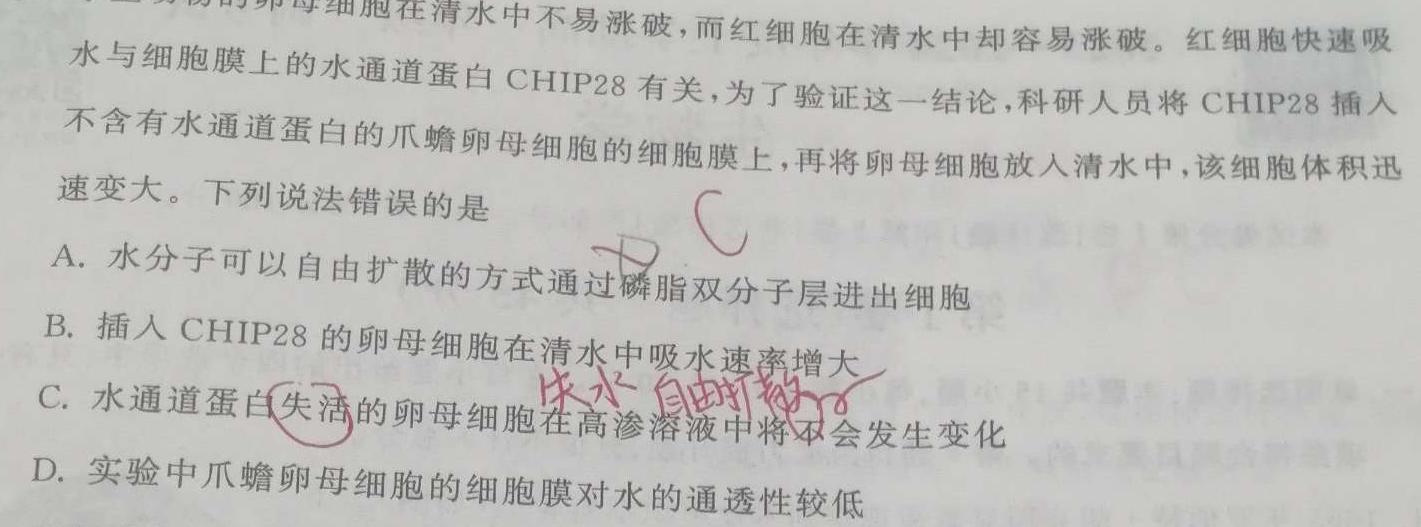 卵母细胞在清水中不易涨破，而红细胞在清水中却容易涨破。红细胞快速吸
水与细胞膜上的水通道蛋白 CHIP28 有关，为了验证这一结论，科研人员将 CHIP28 插入
不含有水通道蛋白的爪蟾卵母细胞的细胞膜上，再将卵母细胞放入清水中，该细胞体积迅
速变大。下列说法错误的是
C
A. 水分子可以自由扩散的方式通过磷脂双分子层进出细胞
B. 插入 CHIP28 的卵母细胞在清水中吸水速率增大
失水 自由扩散
C. 水通道蛋白失活的卵母细胞在高渗溶液中将不会发生变化
D. 实验中爪蟾卵母细胞的细胞膜对水的通透性较低